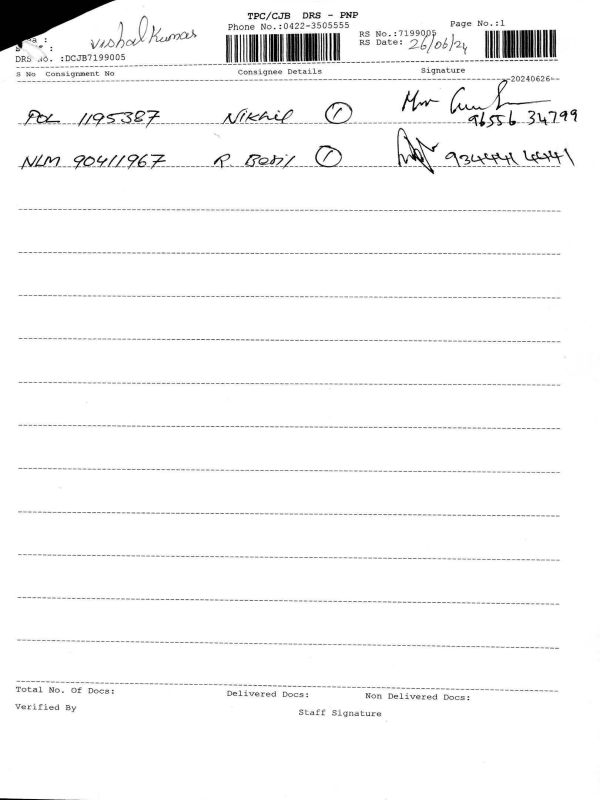 TPC/CJB DRS - PNP
Phone No.:0422-3505555
RS No.:7199005
Page No.:1
Vishal Kumar
RS Date: 26/06/24
DRS No. :DCJB7199005
S No Consignment No Consignee Details Signature
20240626
POL 1195387 Nikhil 1 96556 34799
NLM 90411967 R. Basil 1
Total No. Of Docs: Delivered Docs: Non Delivered Docs:
Verified By Staff Signature